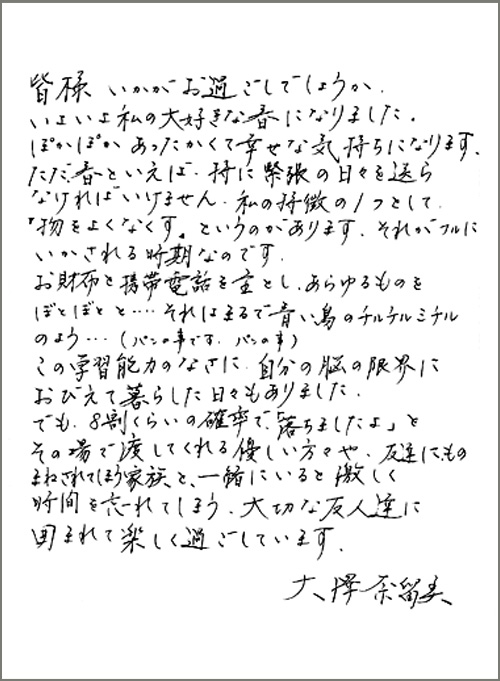 皆様 いかがお過ごしでしょうか.
いよいよ私の大好きな春になりました.
ぽかぽか あったかくて幸せな気持ちになります.
ただ、春といえば 特に緊張の日々を送ら
なければいけません. 私の特徴の1つとして
「物をよくなくす」というのがあります. それがフルに
いかされる時期なのです.
お財布と携帯電話を主とし、あらゆるものを
ぼとぼとと…. それはまるで青い鳥のチルチルミチル
のよう… (パンの事です. パンの事)
この学習能力のなさに 自分の脳の限界に
おびえて暮らした日々もありました.
でも、8割くらいの確率で「落ちましたよ」と
その場で渡してくれる優しい方々や、友達にもの
まねされてしまう家族、と、一緒にいると激しく
時間を忘れてしまう、大切な友人達に
囲まれて楽しく過ごしています.
大澤奈留美